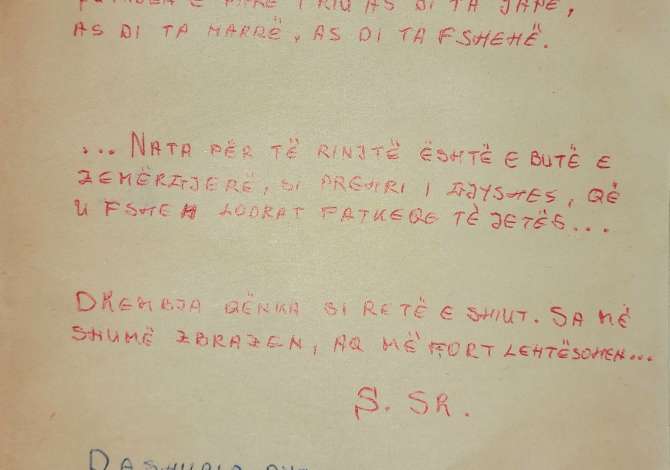 E PARË I RIU AS DI TA JAPË,
AS DI TA MARRË, AS DI TA FSHEHË.
... NATA PËR TË RINJTË ËSHTË E BUTË E
ZEMËRGJERË, SI PREHRI I GJYSHES, QË
U FSHEH LODRAT FATKEQE TË JETËS...
DHEMBJA QËNKA SI RETË E SHIUT. SA MË
SHUMË ZBRAZEN, AQ MË FORT LEHTËSOHEN...
S. SR.
DASHURIA